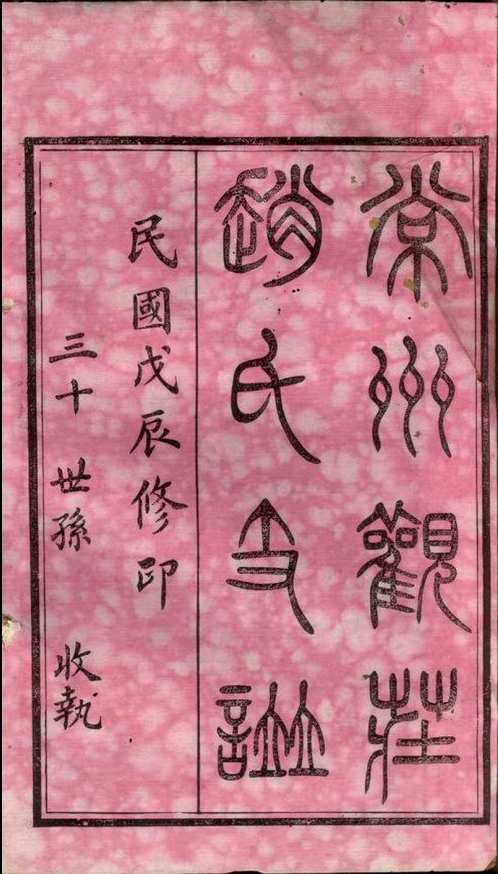 常州觀莊
趙氏支譜
民國戊辰修印
三十世孫 收執